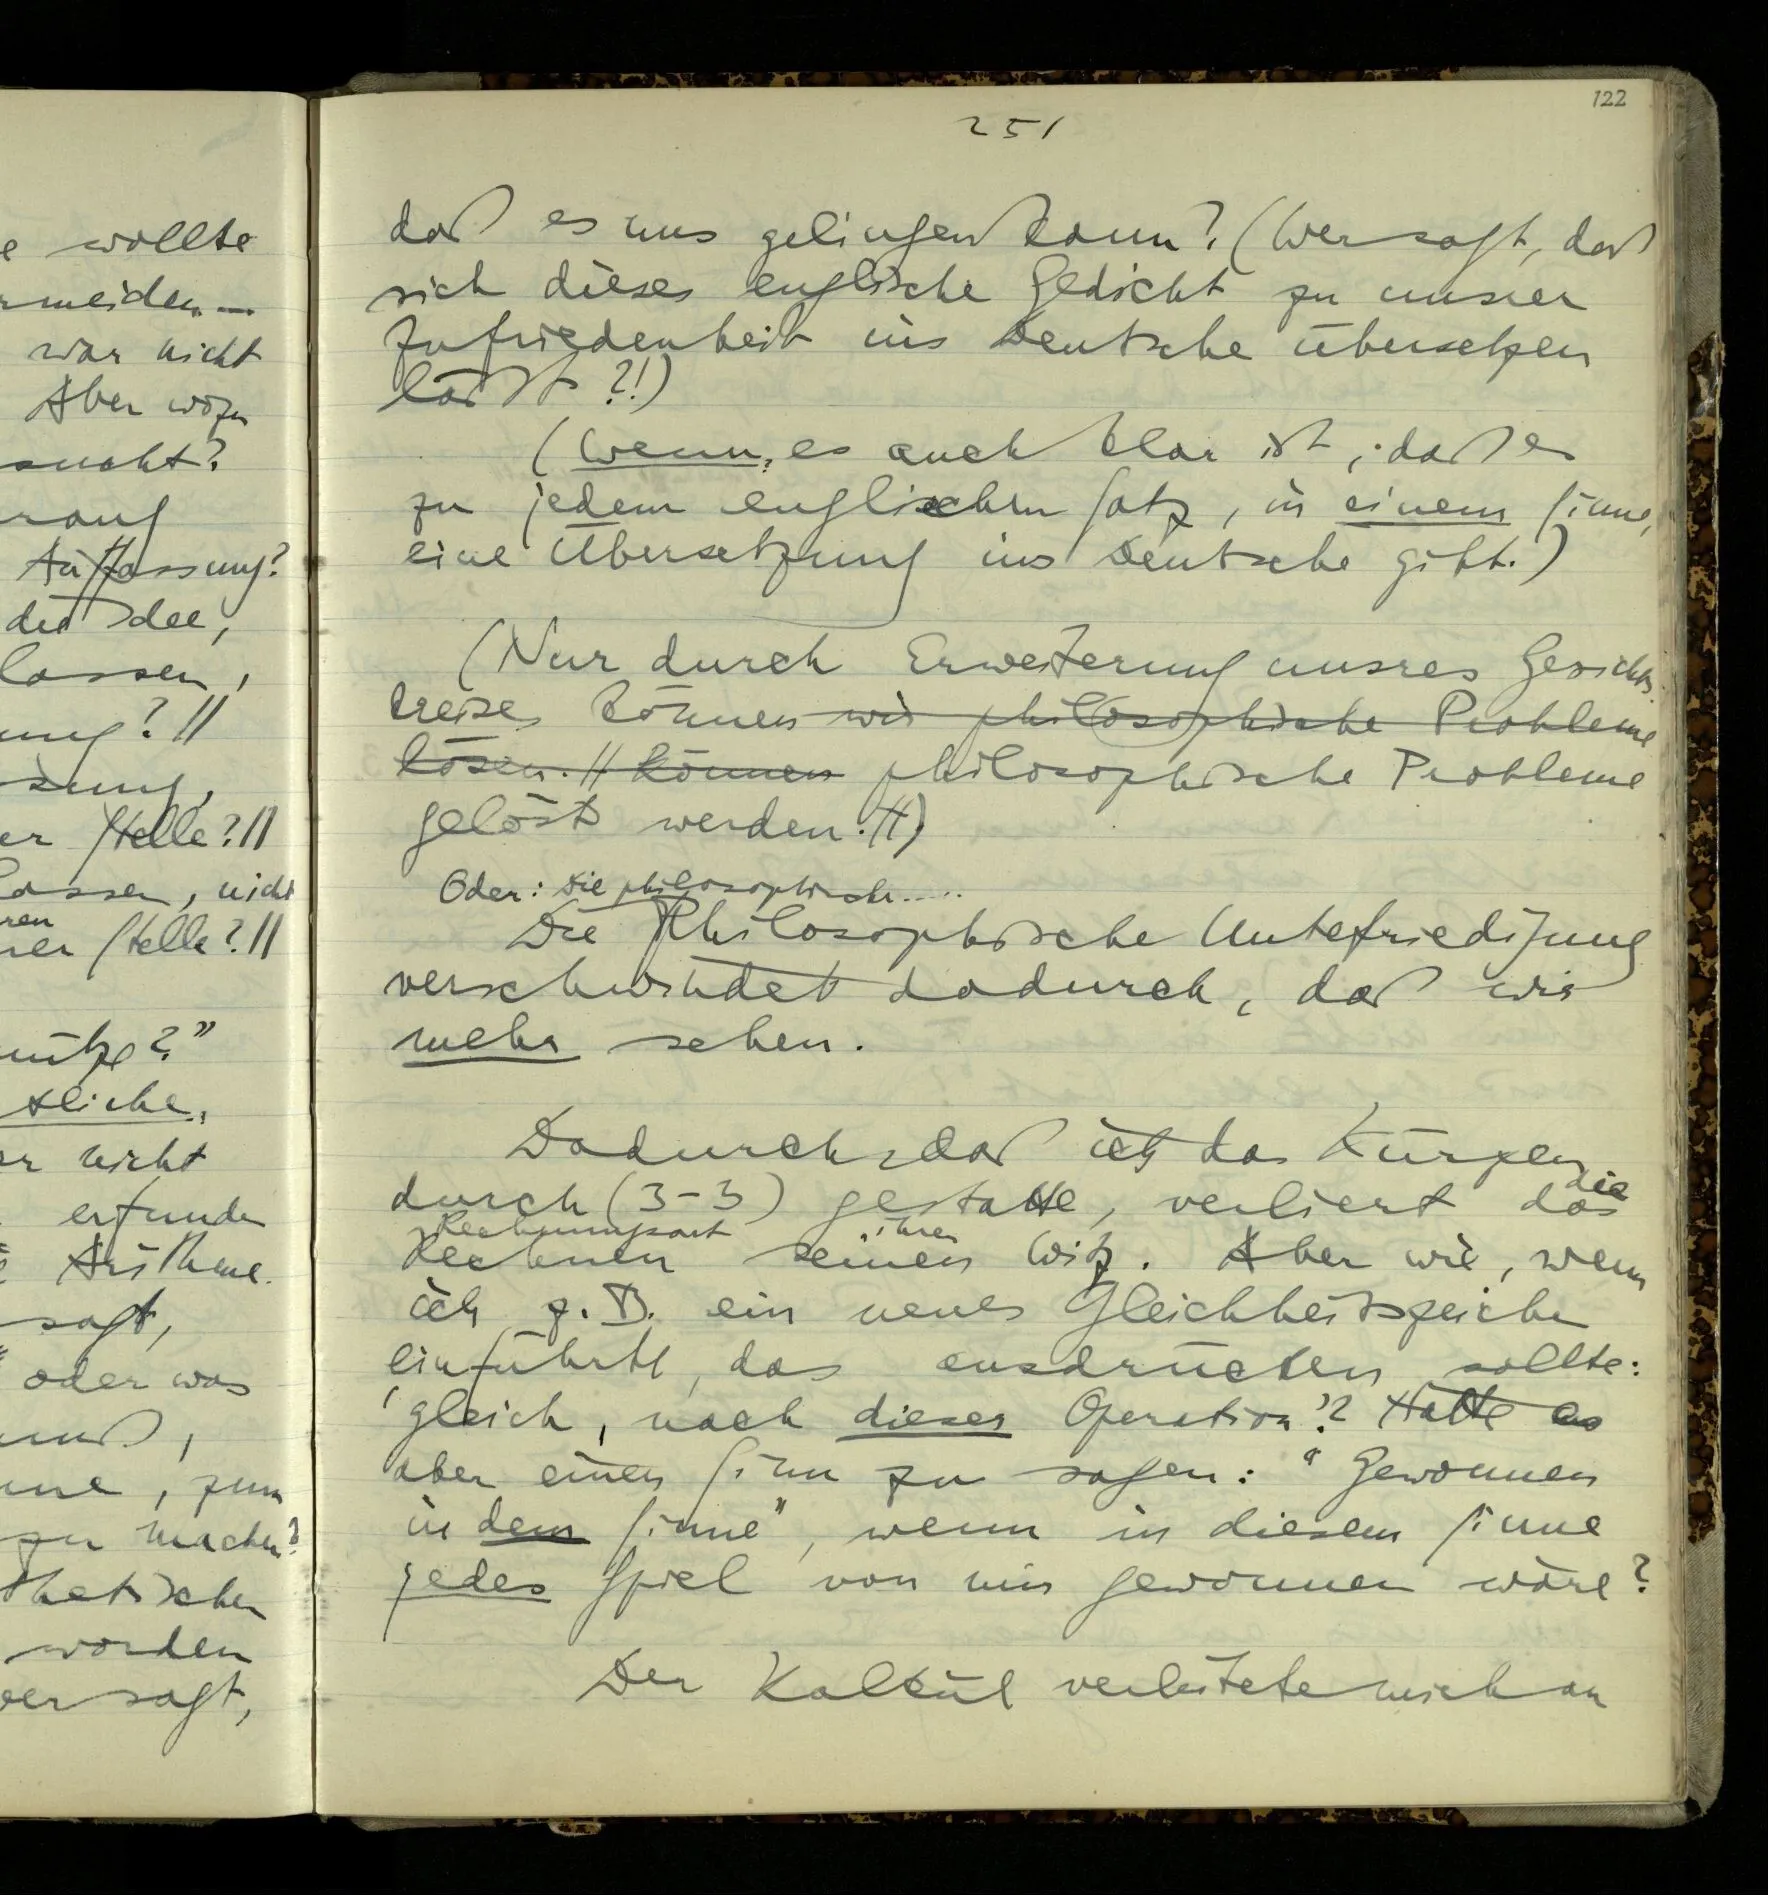 e wollte
rmeiden...
war nicht
Aber wozu
sucht?
rang
Auffassung?
die Idee,
lassen,
ung? //
zung,
er Stelle? //
lassen, nicht
ren
rer Stelle? //
nütze?"
tliche,
er nicht
erfunden
Arithme.
sagt,
oder was
muß,
nne, zum
zu machen?
thetischen
worden
wer sagt,
122
251
daß es uns gelingen kann? (Wer sagt, daß
sich dieses englische Gedicht zu unsrer
Zufriedenheit ins Deutsche übersetzen
läßt?!)
(Wenn es auch klar ist, daß es
zu jedem englischen Satz, in einem Sinne,
eine Übersetzung ins Deutsche gibt.)
(Nur durch Erweiterung unsres Gesichts
kreises können wir philosophische Probleme
lösen. // können philosophische Probleme
gelöst werden. //)
Oder: Die philosophische.....
Die Philosophische Unbefriedigung
verschwindet dadurch, daß wir
mehr sehen.
Dadurch daß ich das Kürzen
die
durch (3-3) gestatte, verliert das
Rechnungsart ihren
Rechnen seinen Witz. Aber wie, wenn
ich z.B. ein neues Gleichheitszeichen
einführte, das ausdrücken sollte:
'gleich, nach dieser Operation'? Hätte es
aber einen Sinn zu sagen: "Gewonnen
in dem Sinne", wenn in diesem Sinne
jedes Spiel von mir gewonnen wäre?
Der Kalkül verleitete mich an